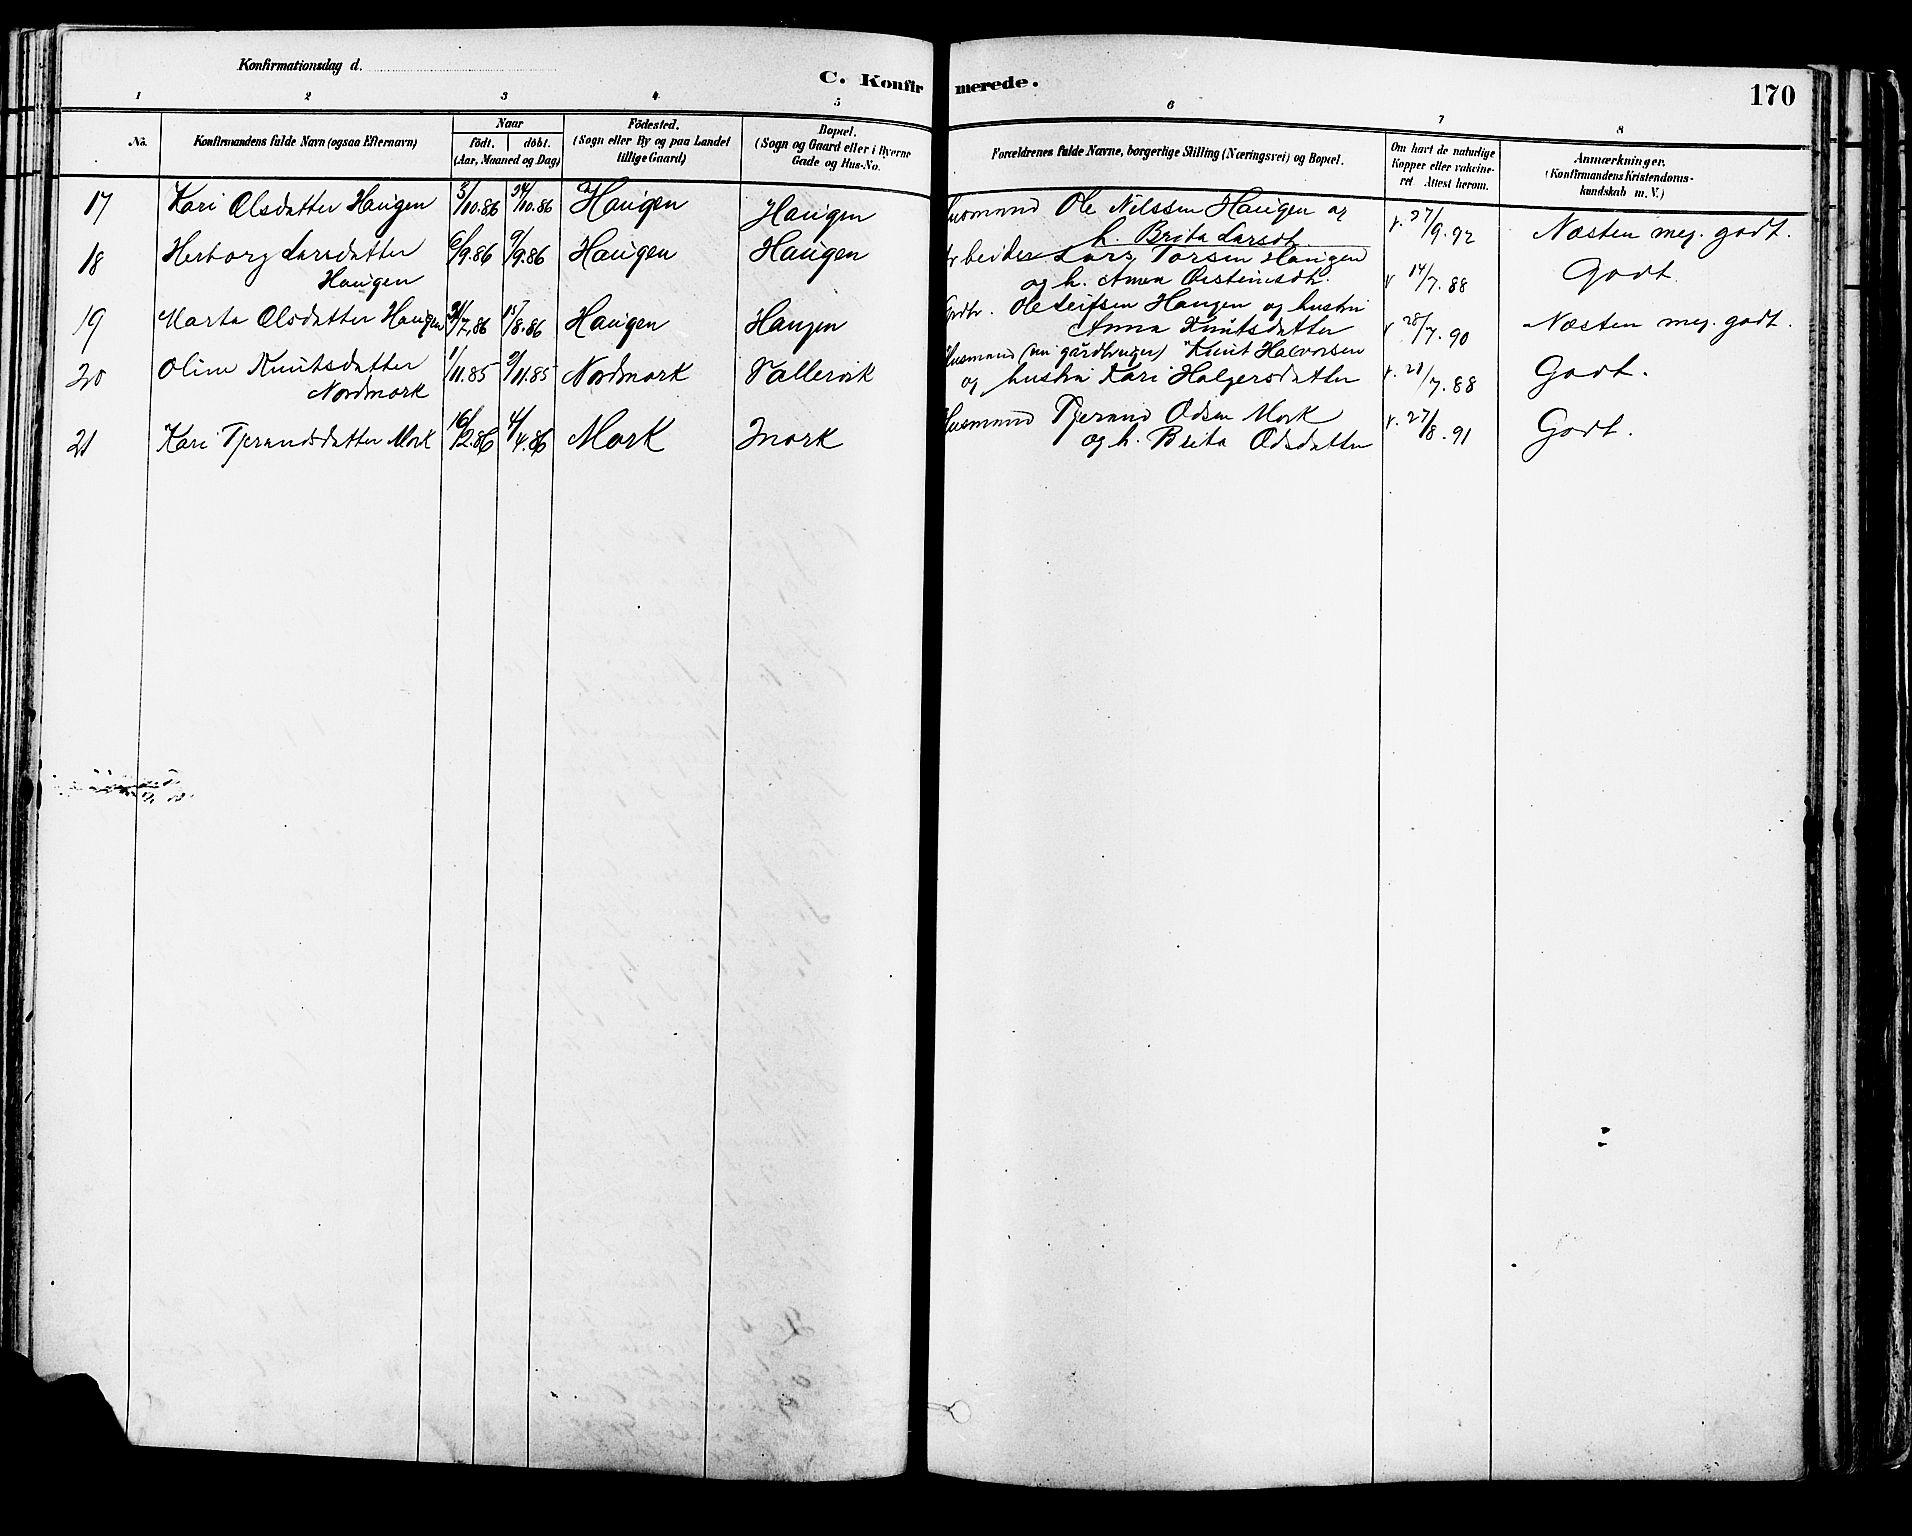 Konfirmationsdag d.
C. Konfirmerede.
170
1 2 3 4 5 6 7 8
No. Konfirmandens fulde Navn (ogsaa Efternavn) Naar født. døbt. (Aar, Maaned og Dag) Födested. (Sogn eller By og paa Landet tillige Gaard) Bopæl. (Sogn og Gaard eller i Byerne Gade og Hus-No. Forældrenes fulde Navne, borgerlige Stilling (Næringsvei) og Bopæl. Om havt de naturlige Kopper eller vakcineret Attest herom. Anmærkninger. (Konfirmandens Kristendomskundskab m. V.)
17 Kari Olsdatter Haugen 3/10.86 24/10.86 Haugen Haugen Husmand Ole Nilssen Haugen og v. 27/9.92 Næsten meg. godt.
h. Brita Larsdt.
18 Herborg Larsdatter 6/9.86 9/9.86 Haugen Haugen Arbeider Lars Torsen Haugen v 14/7.88 Godt
Haugen og h. Anna Oisteinsdt.
19 Marta Olsdatter Haugen /7.86 15/8.86 Haugen Haugen Grdbr. Ole Leifsen Haugen og hustru v 28/7.90 Næsten meg. godt.
Anna Knutsdatter
20 Oline Knutsdatter 1/11.85 9/11.85 Nordmork Vallervik Husmand (nu gårdbruger) Knut Halvorsen v. /7.88 Godt.
Nordmork og hustru Kari Holgersdatter
21 Kari Tjerandsdatter Mork 16/2.86 4/4.86 Mork Mork Husmand Tjerand Odsen Mork v. 27/8.91 Godt.
og h. Brita Odsdatter